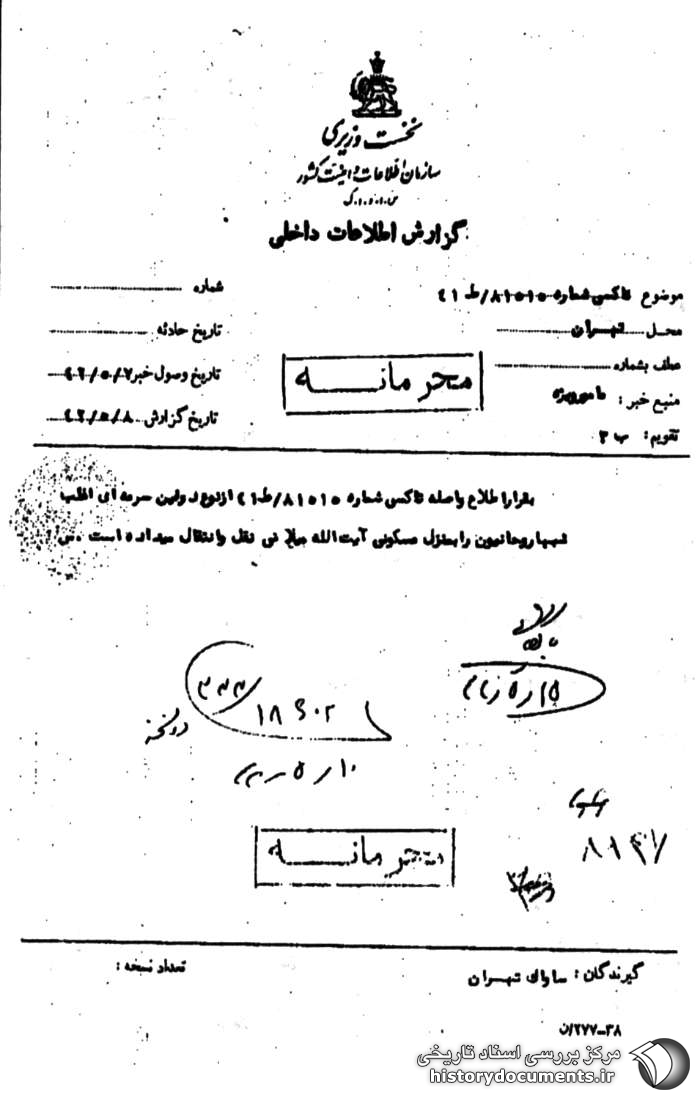 نخست وزیری
سازمان اطلاعات و امنیت کشور
س.ا.و.ا.ک
گزارش اطلاعات داخلی
موضوع تاکسی شماره ۸۱۵۱۵/ط ٤۱
محل تهران
عطف بشماره
منبع خبر : مامور ویژه
تقویم : ب ۳
شماره
تاریخ حادثه
تاریخ وصول خبر ٤۲/٥/۷
تاریخ گزارش ٤۲/٥/۸
محرمانه
بقرار اطلاع واصله تاکسی شماره ۸۱٥۱٥/ط٤۱ از نوع دولوکس سرمه ای اغلب
شبها روحانیون را بمنزل مسکونی آیت‌الله میلانی نقل و انتقال میداده است .س
۱۸۶۰۲
دو نسخه
محرمانه
گیرندگان : ساواک تهران
تعداد نسخه :
۳۸-۲۷۷/ن
مرکز بررسی اسناد تاریخی
historydocuments.ir